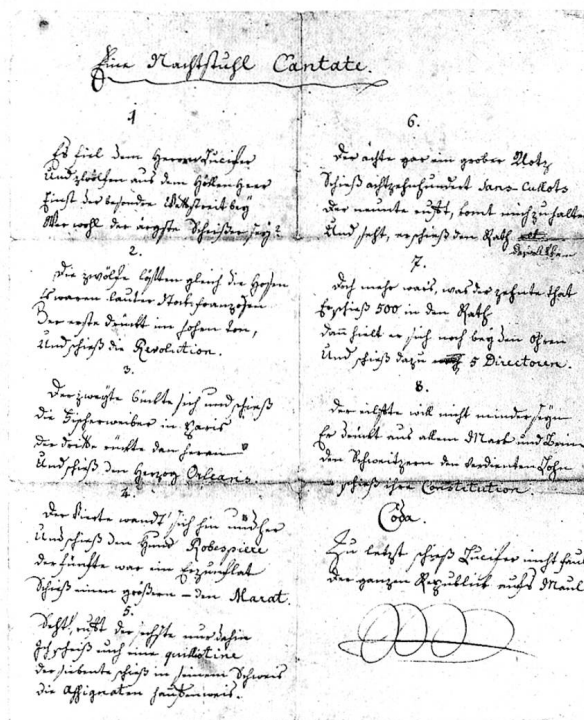 Eine Nachtstuhl Cantate.
1
Es fiel dem Herrn Lucifer
Und zwölfen aus dem Höllen Heer
Einst der besondre Wettstreit bey
Wer wohl der ärgste Scheißer sey?
2.
Die zwölfe lößten gleich die Hosen
Es waren lauter Stock-franzosen
Der erste drückt im hohen Ton,
Und schieß die Revolution.
3.
Der zweyte bückte sich und schieß
Die Fischerweiber in Paris
Der dritte rückte den
Und schieß den Herzog Orleans.
4.
Der Vierte wandt sich hin und her
Und schieß den Robespiere
Der fünfte war ein
Schieß einen größern – den Marat.
5.
Seht, rufft der sechste nur dahin
Ich scheiß euch eine guillotine
Der siebente schieß in seinem Schweis
Die Assignaten haufenweis.
6.
Der achte war ein grober Motz
Schieß achtzehnhundert Sans-Culots
Der neunte rufft, komt mich zu halte
Und seht, er schieß den Rath
der
7.
Doch mehr war's, was der zehnte that
Er schieß 500 in den Rath
Dann hielt er sich noch bey den Ohren
Und schieß dazu 5 Directoren.
8.
Der eilfte will nicht minder seyn
Er drückt aus allem Mark und Bein
Den Schweitzern den verdienten Lohn
schieß ihre Constitution.
Coda.
Zu letzt schieß Lucifer nicht faul
Der ganzen Republick aufs Maul